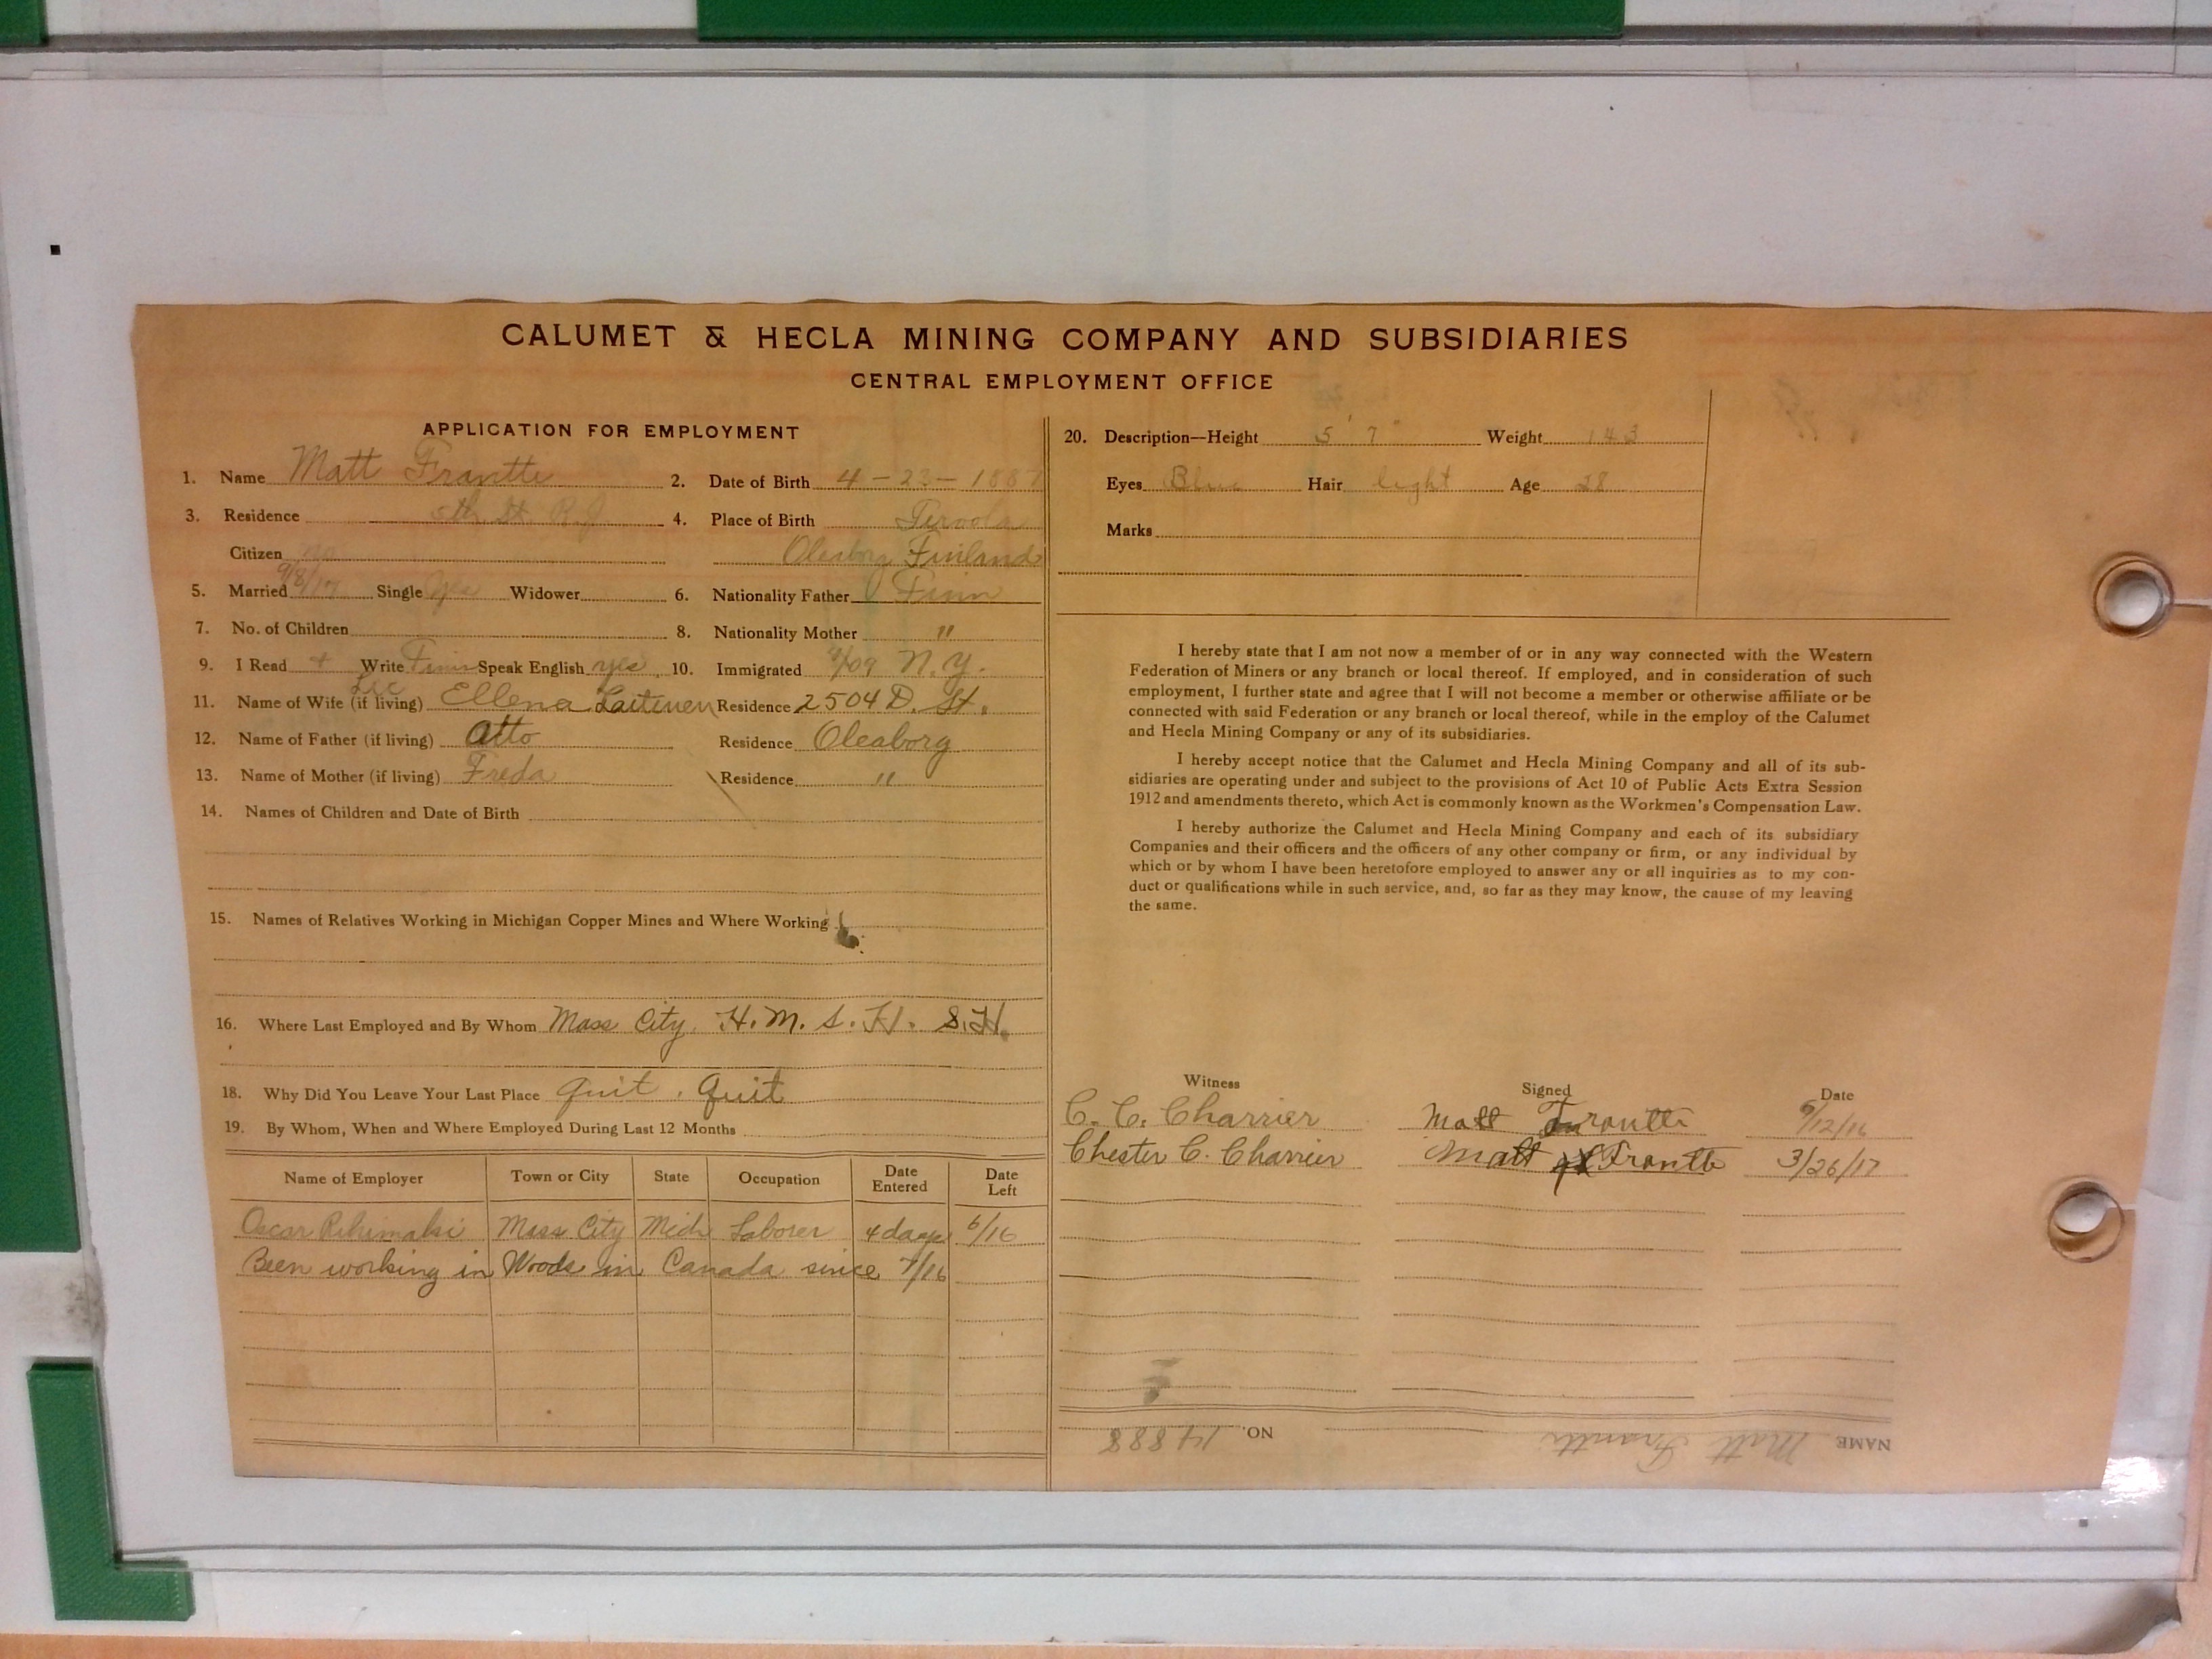 CALUMET & HECLA MINING COMPANY AND SUBSIDIARIES
CENTRAL EMPLOYMENT OFFICE
APPLICATION FOR EMPLOYMENT
1. Name Matt Frantti 2. Date of Birth 4-23-1887
3. Residence 5th St 4. Place of Birth Tervola
Citizen no Oleaborg Finland
5. Married 9/8/17 Single yes Widower 6. Nationality Father Finn
7. No. of Children 8. Nationality Mother "
9. I Read + Write Finn Speak English yes 10. Immigrated /09 N.Y.
11. Name of Wife (if living) Ellena Laitenen Residence 2504 D. St.
12. Name of Father (if living) Otto Residence Oleaborg
13. Name of Mother (if living) Freda Residence "
14. Names of Children and Date of Birth
15. Names of Relatives Working in Michigan Copper Mines and Where Working
16. Where Last Employed and By Whom Mass City. H.M. S.H. S.H.
18. Why Did You Leave Your Last Place Quit. Quit
19. By Whom, When and Where Employed During Last 12 Months
Name of Employer Town or City State Occupation Date Entered Date Left
Oscar Mass City Mich Laborer 4 days 6/16
Been working in Woods in Canada since 7/16
20. Description—Height 5' 7" Weight 143
Eyes Blue Hair light Age 28
Marks
I hereby state that I am not now a member of or in any way connected with the Western
Federation of Miners or any branch or local thereof. If employed, and in consideration of such
employment, I further state and agree that I will not become a member or otherwise affiliate or be
connected with said Federation or any branch or local thereof, while in the employ of the Calumet
and Hecla Mining Company or any of its subsidiaries.
I hereby accept notice that the Calumet and Hecla Mining Company and all of its sub-
sidiaries are operating under and subject to the provisions of Act 10 of Public Acts Extra Session
1912 and amendments thereto, which Act is commonly known as the Workmen's Compensation Law.
I hereby authorize the Calumet and Hecla Mining Company and each of its subsidiary
Companies and their officers and the officers of any other company or firm, or any individual by
which or by whom I have been heretofore employed to answer any or all inquiries as to my con-
duct or qualifications while in such service, and, so far as they may know, the cause of my leaving
the same.
Witness Signed Date
C. C. Charrier Matt Frantti /12/16
Chester C. Charrier Matt Frantti 3/26/17
NAME Matt Frantti NO. 14888